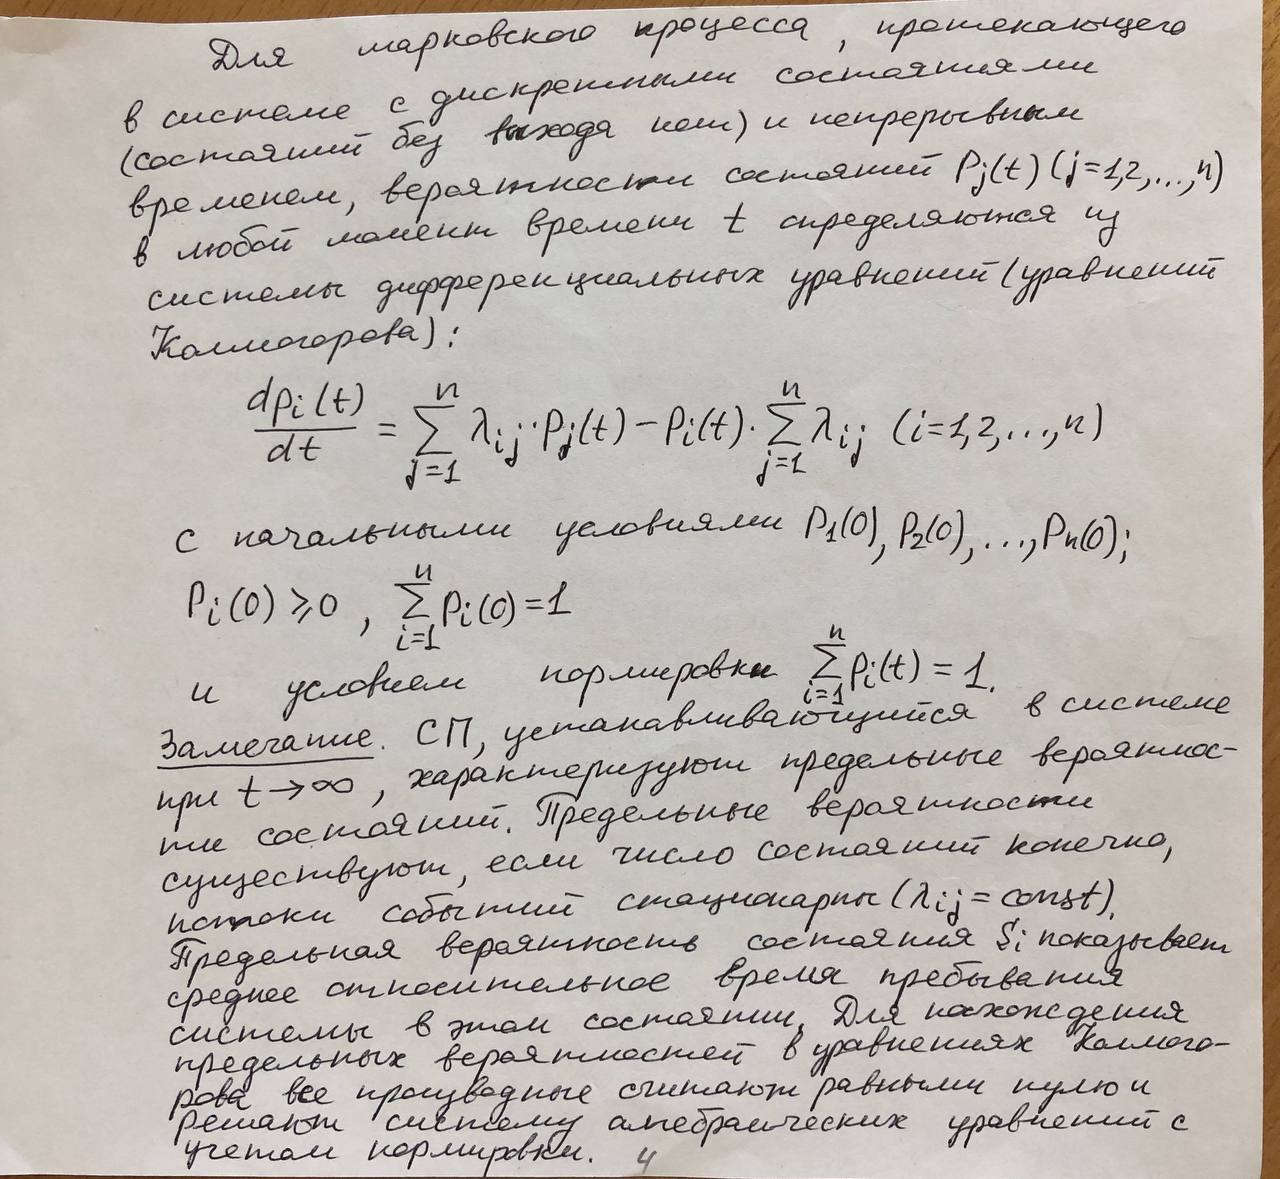 Для марковского процесса, протекающего
в системе с дискретными состояниями
(состояний без выхода нет) и непрерывным
временем, вероятности состояний Pj(t) (j=1,2,...,n)
в любой момент времени t определяются из
системы дифференциальных уравнений (уравнений
Колмогорова):
dpi(t)/dt = ∑_{j=1}^{n} λij·pj(t) − pi(t)·∑_{j=1}^{n} λij (i=1,2,...,n)
с начальными условиями P1(0), P2(0),...,Pn(0);
Pi(0) ⩾ 0, ∑_{i=1}^{n} Pi(0) = 1
и условием нормировки ∑_{i=1}^{n} pi(t) = 1.
Замечание. СП, устанавливающийся в системе
при t→∞, характеризуют предельные вероятнос-
ти состояний. Предельные вероятности
существуют, если число состояний конечно,
потоки событий стационарны (λij = const).
Предельная вероятность состояния Si показывает
среднее относительное время пребывания
системы в этом состоянии. Для нахождения
предельных вероятностей в уравнениях Колмого-
рова все производные считают равными нулю и
решают систему алгебраических уравнений с
учетом нормировки. 4